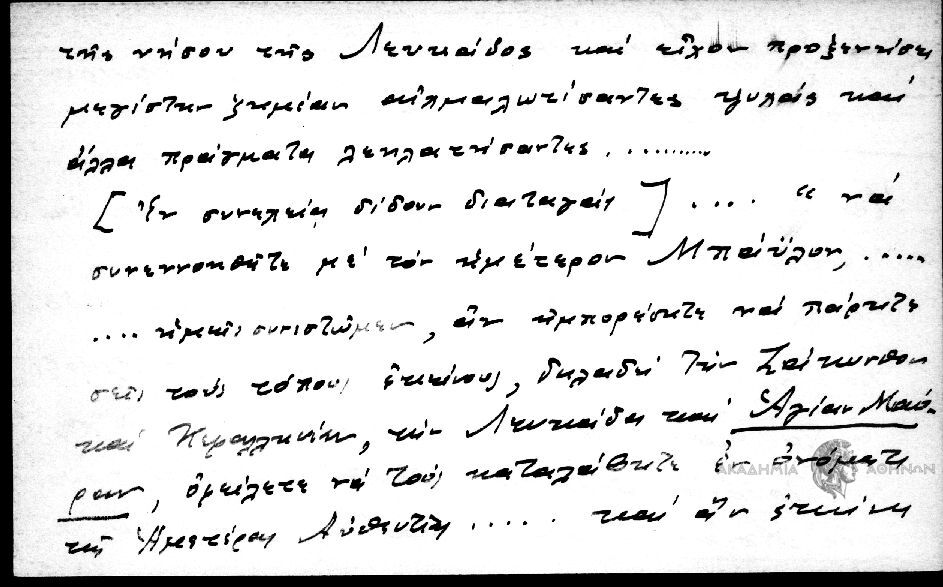 τῆς νήσου τῆς Λευκάδος καί εἶχον προξενήσει
μεγίστην ζημίαν αἰχμαλωτίσαντες ψυχάς καί
ἄλλα πράγματα λεηλατήσαντες. .........
[Ἐν συνεχείᾳ δίδουν διαταγάς] .... "νά
συνεννοηθῆτε μέ τόν ἡμέτερον Μπάϋλον, .....
.... ἡμεῖς συνιστῶμεν, ἄν ἠμπορέσητε νά πάρητε
σεῖς τούς τόπους ἐκείνους, δηλαδή τήν Ζάκυνθον
καί Κεφαλληνίαν, τήν Λευκάδα καί Ἁγίαν Μαύ-
ραν, ὀφείλετε νά τούς καταλάβητε ἐν ὀνόματι
τῆς Ἡμετέρας Αὐθεντίας ..... καί ἄν ἐκεῖνη
ΑΚΑΔΗΜΙΑ ΑΘΗΝΩΝ